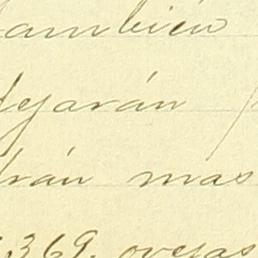 también
dejarán
drán mas
369. ovejas